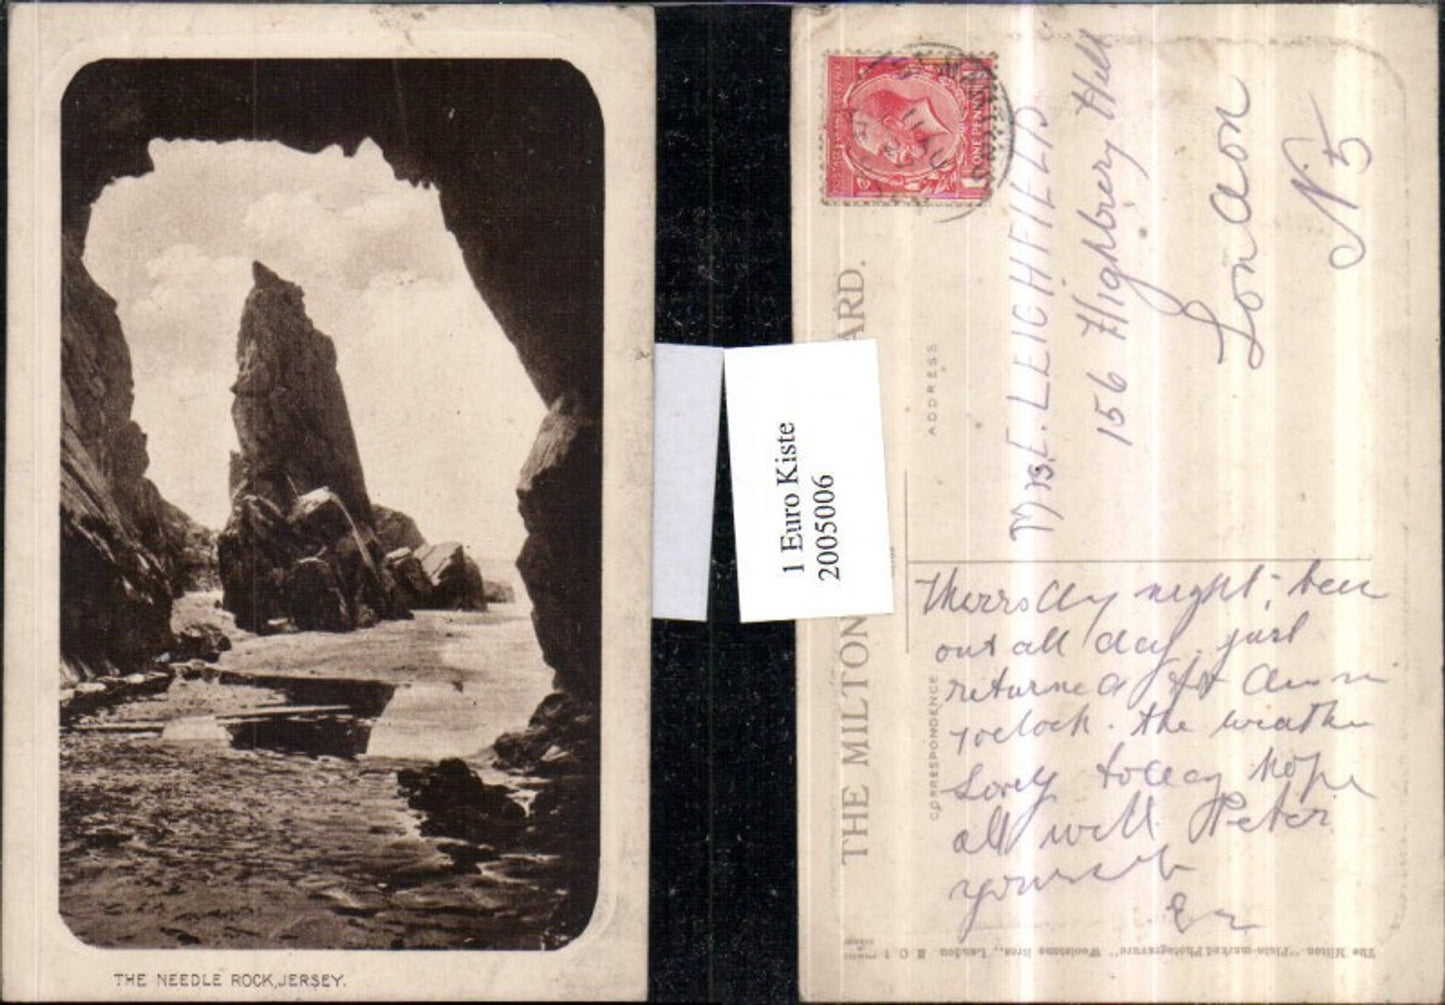 THE NEEDLE ROCK, JERSEY.
1 Euro Kiste
2005006
THE MILTON
ARD.
ADDRESS
CORRESPONDENCE
ONE PENNY
Mrs. E. LEIGHFIELD
156 Highbury Hill
London
N 5
night, been
out all day, just
returned
7 oclock. the weather
Lovely today Hope
all well Peter
yourself
The Milton "Fisto-marked Photogravure" Woolstone Bros., London E C 1